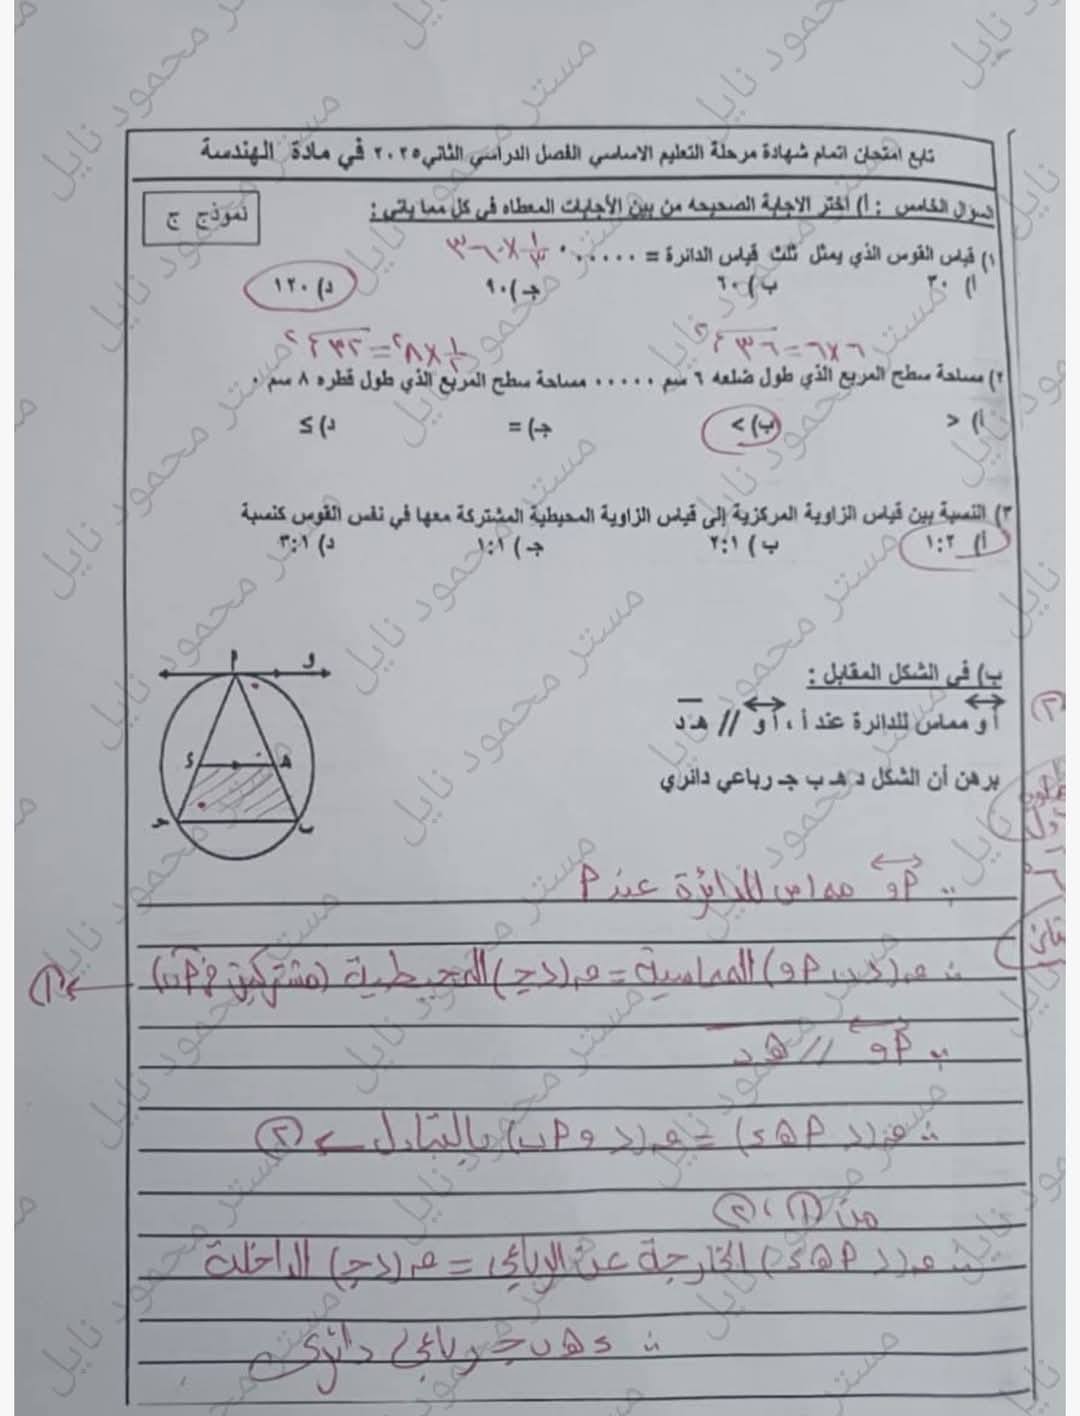 تابع امتحان اتمام شهادة مرحلة التعليم الاساسي الفصل الدراسي الثاني ٢٠٢٥ في مادة الهندسة
السؤال الخامس : أ) أختر الاجابة الصحيحه من بين الأجابات المعطاه في كل مما يأتي :
نموذج ج
١) قياس القوس الذي يمثل ثلث قياس الدائرة = ......° ١/٣ × ٣٦٠
أ) ٣٠ ب) ٦٠ جـ) ٩٠ د) ١٢٠
٦×٦ = ٣٦ سم٢ ١/٢ × ٨٢ = ٣٢ سم٢
٢) مساحة سطح المربع الذي طول ضلعه ٦ سم ..... مساحة سطح المربع الذي طول قطره ٨ سم .
أ) < ب) > جـ) = د) ≥
٣) النسبة بين قياس الزاوية المركزية إلى قياس الزاوية المحيطية المشتركة معها في نفس القوس كنسبة
أ) ١:٢ ب) ٢:١ جـ) ١:١ د) ٣:١
ب) في الشكل المقابل :
أ و مماس للدائرة عند أ ، أ و // هـ د
برهن أن الشكل د هـ ب جـ رباعي دائري
و
أ
د
هـ
جـ
ب
∵ أ و مماس للدائرة عند أ
∴ ق(د ب أ و) المماسية = ق(د جـ) المحيطية (مشتركتين في أ ب) ← ①
∵ أ و // هـ د
∴ ق(د أ هـ د) = ق(د و أ ب) بالتبادل ← ②
من ① ، ②
∴ ق(د أ هـ د) الخارجة عن الرباعي = ق(د جـ) الداخلة
∴ د هـ ب جـ رباعي دائري